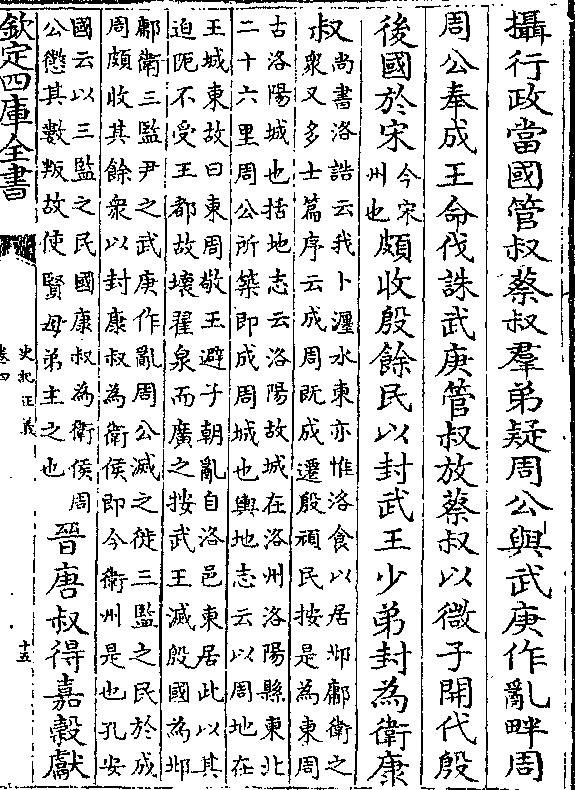 攝行政當國管叔蔡叔羣弟疑周公與武庚作亂畔周
周公奉成王命伐誅武庚管叔放蔡叔以微子開代殷
後國於宋
今宋
州也
頗收殷餘民以封武王少弟封為衛康
叔
尚書洛誥云我卜瀍水東亦惟洛食以居邶鄘衛之
衆又多士篇序云成周既成遷殷頑民按是為東周
古洛陽城也括地志云洛陽故城在洛州洛陽縣東北
二十六里周公所築即成周城也輿地志云以周地在
王城東故曰東周敬王避子朝亂自洛邑東居此以其
迫阨不受王都故壞翟泉而廣之按武王滅殷國為邶
鄘衛三監尹之武庚作亂周公滅之徙三監之民於成
周頗收其餘衆以封康叔為衛侯即今衛州是也孔安
國云以三監之民國康叔為衛侯周
公懲其數叛故使賢母弟主之也
晉唐叔得嘉穀獻
欽定四庫全書
史記正義
卷四
十五